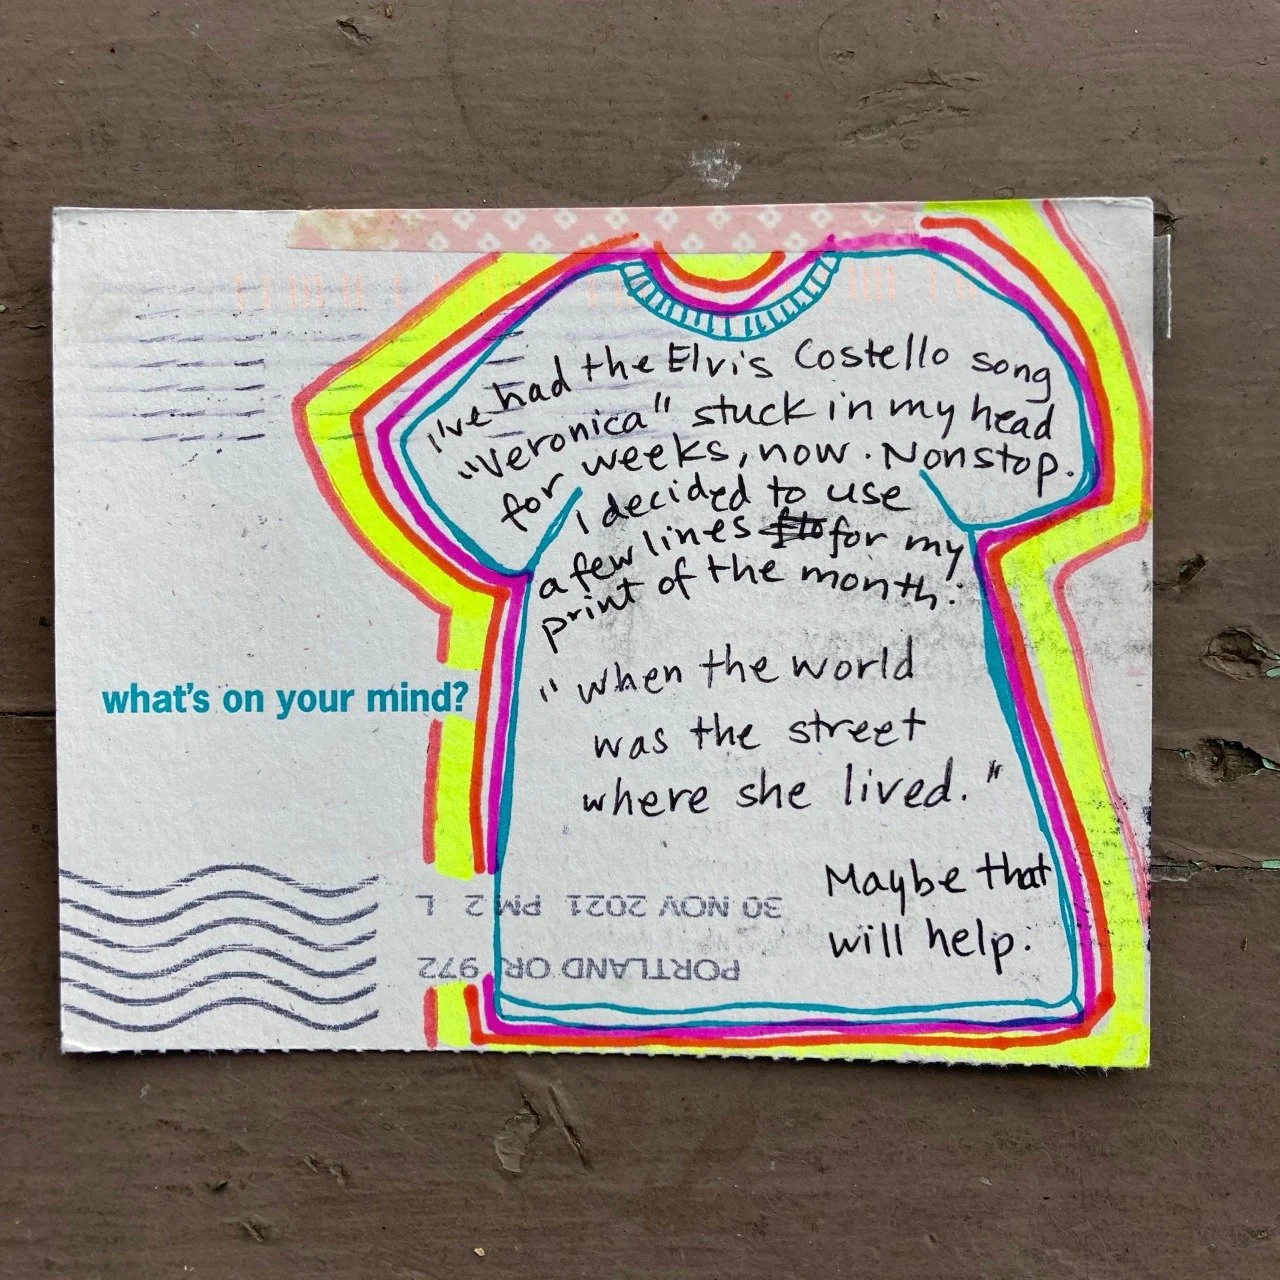 I've had the Elvis Costello song
"Veronica" stuck in my head
for weeks, now. Nonstop.
I decided to use
a few lines for my
print of the month.
"when the world
was the street
where she lived."
Maybe that
will help.
what's on your mind?
PORTLAND OR 972
30 NOV 2021 PM 2 L